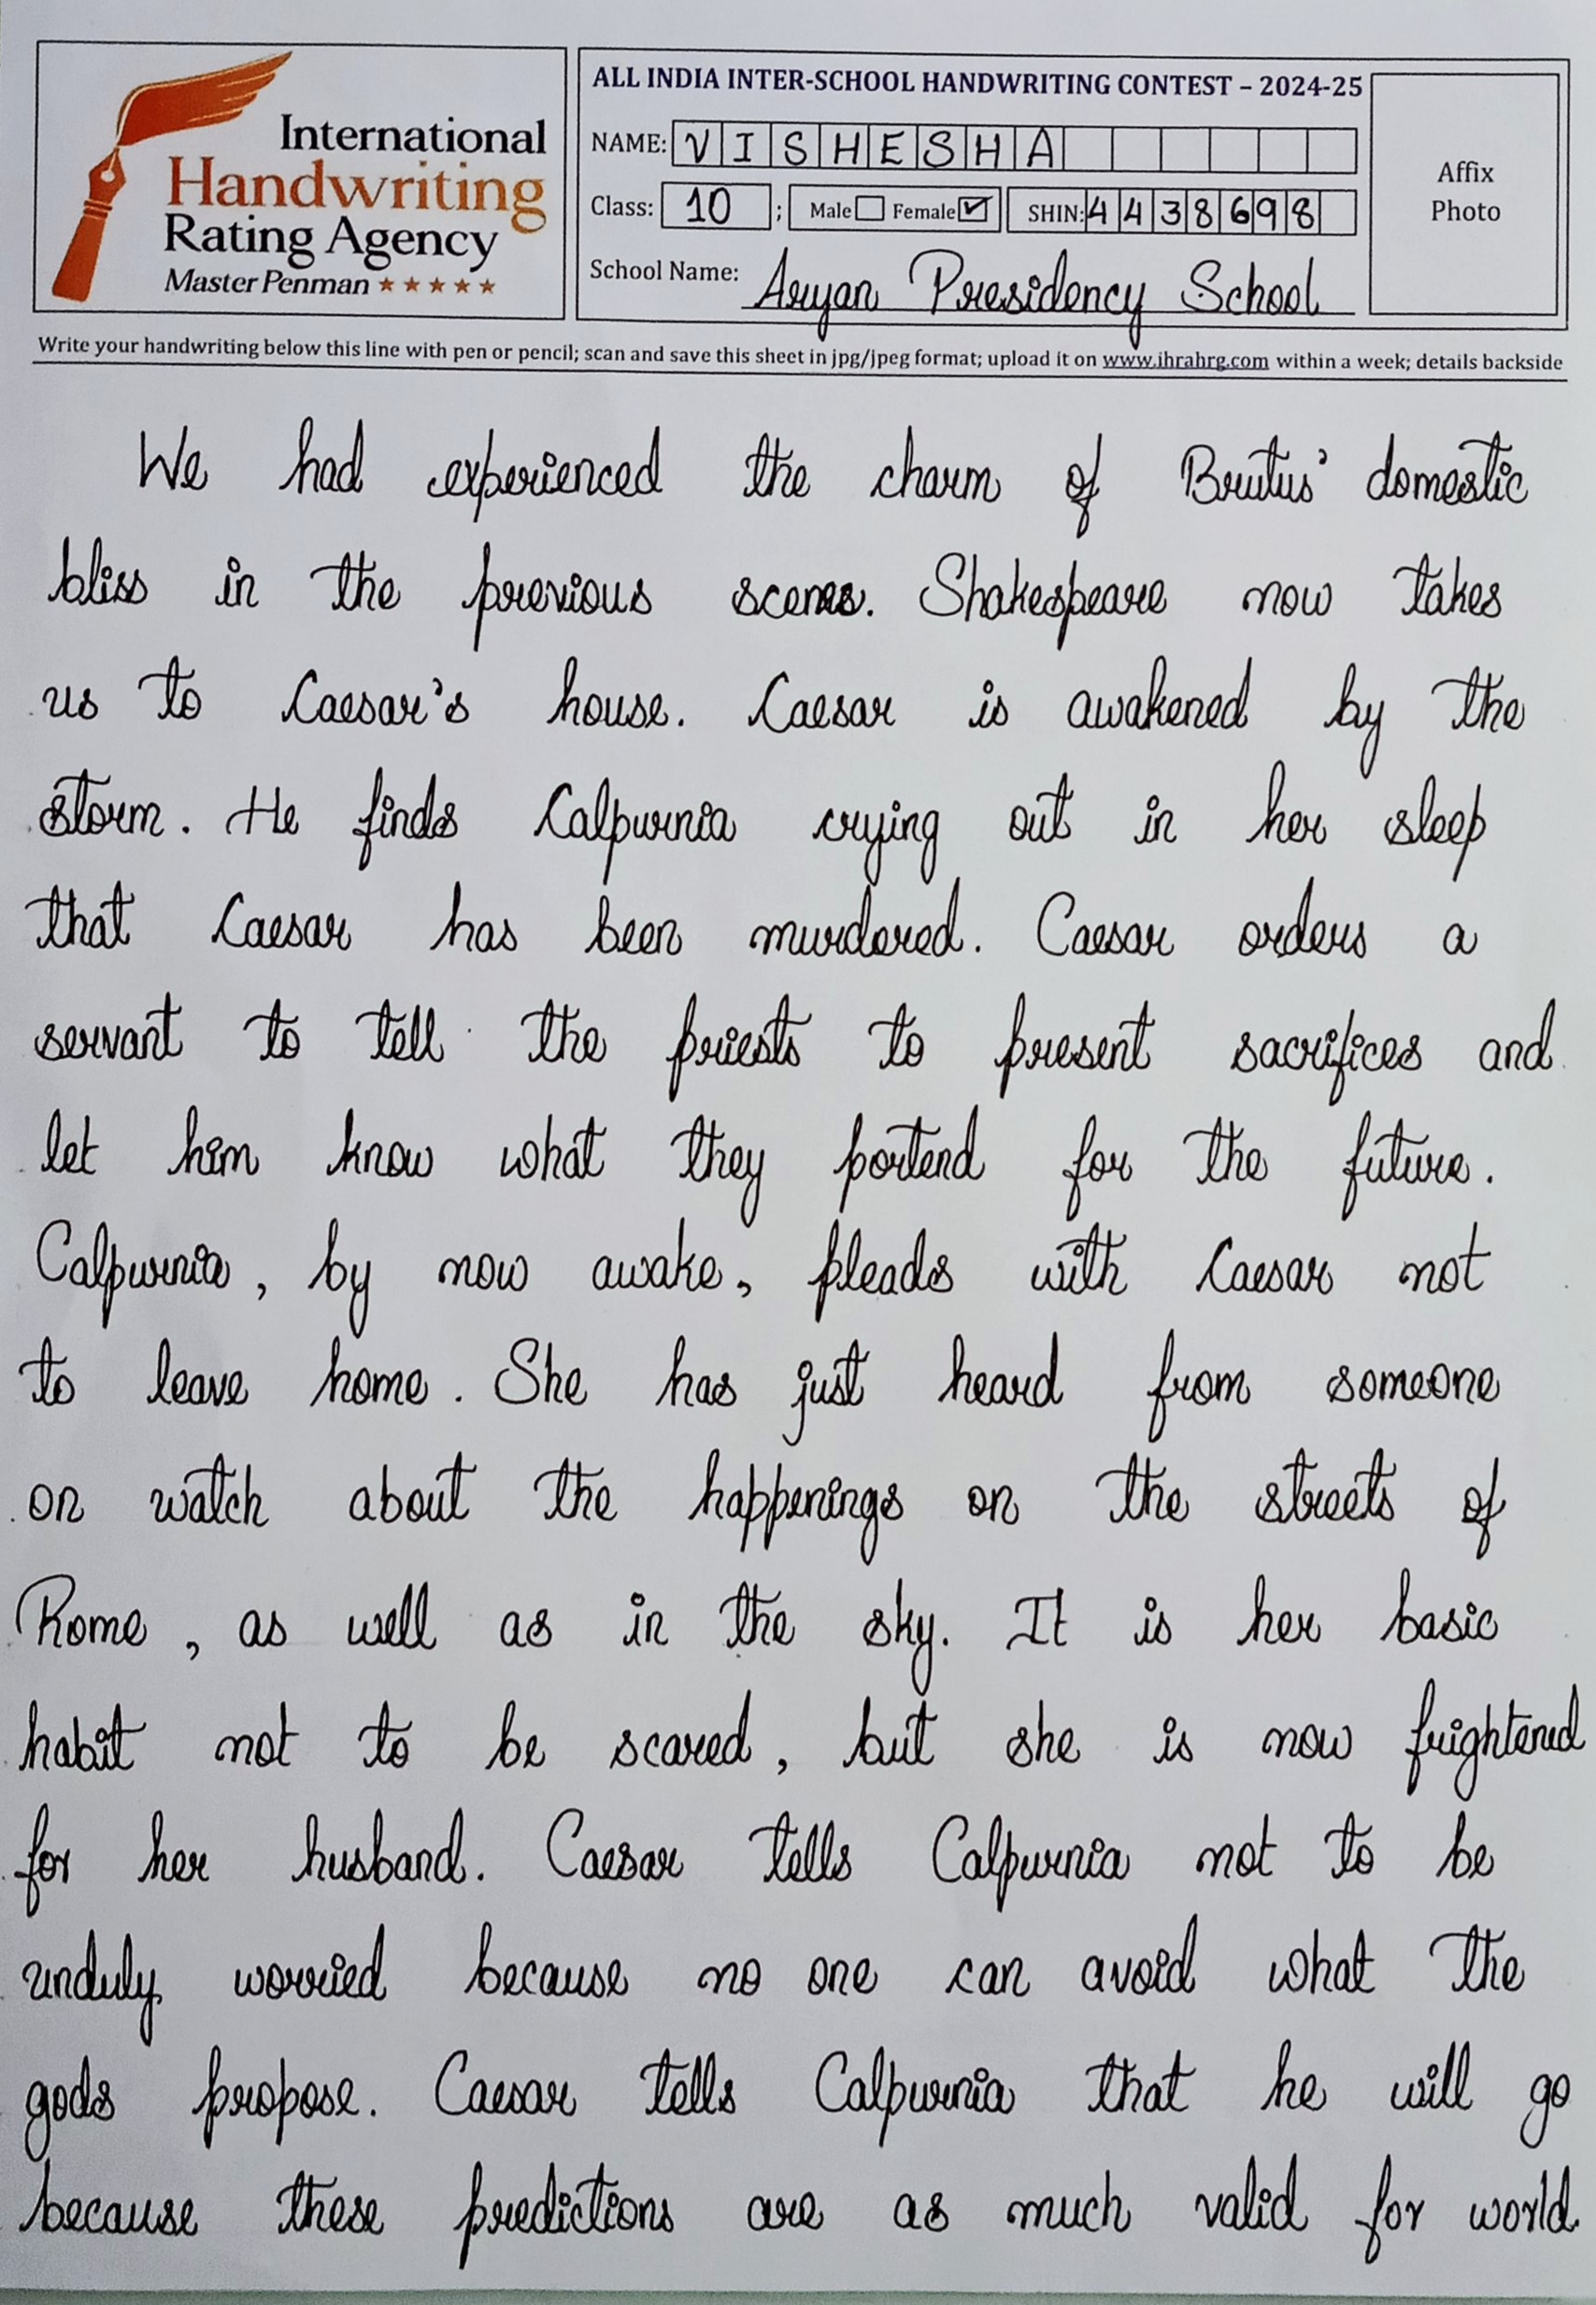 International
Handwriting
Rating Agency
Master Penman ★★★★★
ALL INDIA INTER-SCHOOL HANDWRITING CONTEST – 2024-25
NAME: VISHESHA
Class: 10 ; Male Female ✓ SHIN: 4438698
School Name: Aryan Presidency School
Affix
Photo
Write your handwriting below this line with pen or pencil; scan and save this sheet in jpg/jpeg format; upload it on www.ihrahrg.com within a week; details backside
We had experienced the charm of Brutus' domestic
bliss in the previous scenes. Shakespeare now takes
us to Caesar's house. Caesar is awakened by the
storm. He finds Calpurnia crying out in her sleep
that Caesar has been murdered. Caesar orders a
servant to tell the priests to present sacrifices and
let him know what they portend for the future.
Calpurnia, by now awake, pleads with Caesar not
to leave home. She has just heard from someone
on watch about the happenings on the streets of
Rome, as well as in the sky. It is her basic
habit not to be scared, but she is now frightened
for her husband. Caesar tells Calpurnia not to be
unduly worried because no one can avoid what the
gods propose. Caesar tells Calpurnia that he will go
because these predictions are as much valid for world